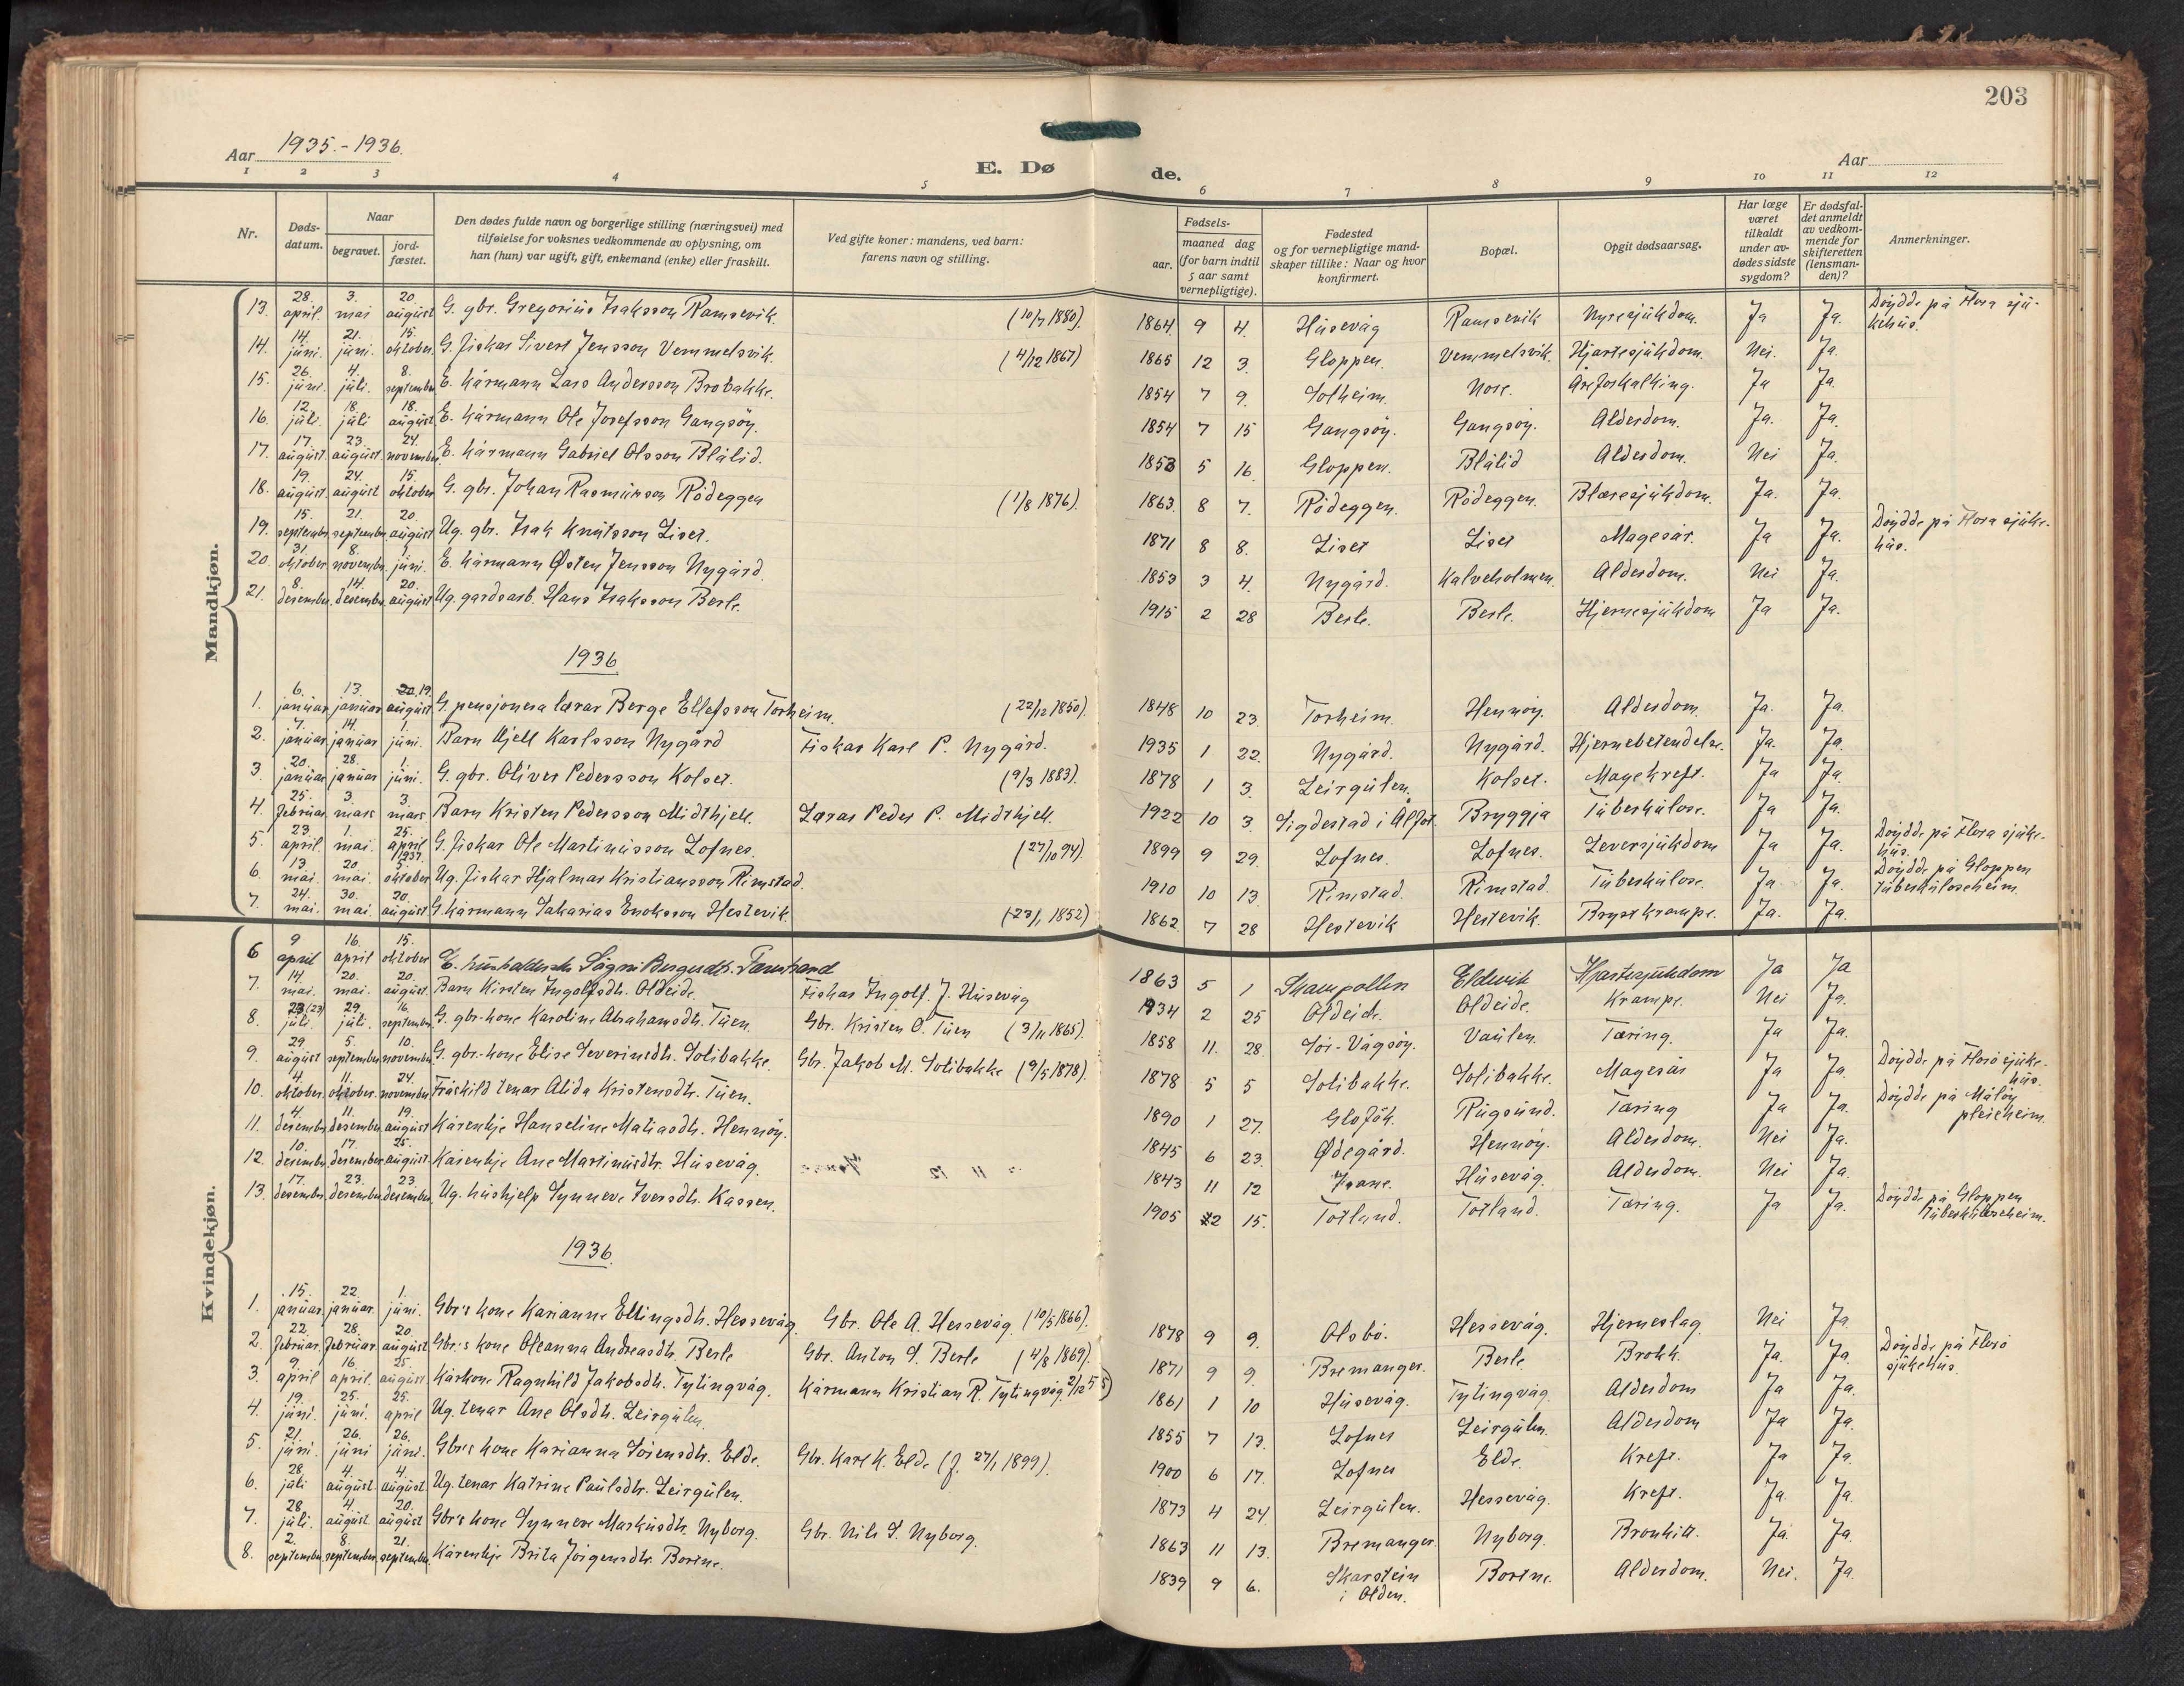 203
Aar 1935.-1936. E. Døde. Aar
1 2 3 4 5 6 7 8 9 10 11 12
Nr. Døds-datum. Naar begravet. jord-fæstet. Den dødes fulde navn og borgerlige stilling (næringsvei) med tilføielse for voksnes vedkommende av oplysning, om han (hun) var ugift, gift, enkemand (enke) eller fraskilt. Ved gifte koner: mandens, ved barn: farens navn og stilling. Fødsels- aar. maaned dag (for barn indtil 5 aar samt vernepligtige). Fødested og for vernepligtige mand-skaper tillike: Naar og hvor konfirmert. Bopæl. Opgit dødsaarsag. Har læge været tilkaldt under av-dødes sidste sygdom? Er dødsfal-det anmeldt av vedkom-mende for skifteretten (lensman-den)? Anmerkninger.
Mandkjøn.
13. 28. april. 3. mai 20. august G. gbr. Gregorius Isaksson Ramsevik. (10/7 1880). 1864 9 4. Husevåg Ramsevik Nyresjukdom. Ja Ja. Døydde på Flora sju-kehus.
14. 14. juni. 21. juni. 15. oktober. G. fiskar Sivert Jensson Vemmelsvik. (4/12 1867) 1865 12 3. Gloppen. Vemmelsvik. Hjartesjukdom. Nei. Ja.
15. 26. juni. 4. juli. 8. september E. kårmann Lars Andersson Brobakke. 1854 7 9. Solheim. Nose. Åreforkalking. Ja Ja.
16. 12. juli. 18. juli 18. august E. kårmann Ole Josefsson Gangsøy. 1854 7 15 Gangsøy. Gangsøy. Alderdom. Ja. Ja.
17. 17. august. 23. august. 24. november. E. kårmann Gabriel Olsson Blålid. 1853 5 16. Gloppen. Blålid Alderdom. Nei Ja.
18. 19. august. 24. august 15. oktober G. gbr. Johan Rasmusson Rødeggen (1/8 1876). 1863. 8 7. Rødeggen. Rødeggen. Blæresjukdom. Ja. Ja.
19. 15. september. 21. september. 20. august Ug. gbr. Isak Knutsson Liset. 1871 8 8. Liset Liset Magesår. Ja Ja. Døydde på Flora sjuke-hus.
20. 31. oktober 8. november. 1. juni. E. kårmann Østen Jensson Nygård. 1853 3 4. Nygård. Kalveholmen. Alderdom. Nei Ja.
21. 8. desember. 14. desember. 20. august Ug. gardsarb. Hans Isaksson Berle. 1915 2 28 Berle. Berle. Hjernesjukdom Ja Ja.
1936
1. 6. januar 13. januar 20, 19. august G. pensjonera lærar Berge Ellefsson Torheim. (22/12 1850). 1848 10 23. Torheim. Hennøy. Alderdom. Ja. Ja.
2. 7. januar 14. januar 1. juni. Barn Kjell Karlsson Nygård Fiskar Karl P. Nygård. 1935 1 22. Nygård. Nygård. Hjernebetendelse. Ja. Ja.
3. 20. januar 28. januar 1. juni. G. gbr. Oliver Pedersson Kolset. (9/3 1883). 1878 1 3. Leirgulen. Kolset. Magekreft. Ja Ja.
4. 25. februar. 3. mars 3. mars. Barn Kristen Pedersson Midthjell. Lærar Peder P. Midthjell. 1922 10 3. Sigdestad i Ålfot. Bryggja Tuberkulose. Ja Ja.
5. 23. april. 1. mai. 25. april 1937. G. fiskar Ole Martinusson Lofnes. (27/10 94). 1899 9 29. Lofnes. Lofnes. Leversjukdom Ja Ja. Døydde på Flora sjuke-hus.
6. 13. mai. 20. mai. 5. oktober Ug. fiskar Hjalmar Kristiansson Rimstad. 1910 10 13. Rimstad. Rimstad. Tuberkulose. Ja Ja. Døydde på Gloppen tuberkuloseheim.
7. 24. mai. 30. mai. 20. august G. kårmann Sakarias Enoksson Hestevik. (23/1 1852) 1862. 7 28 Hestevik Hestevik. Brystkrampe. Ja. Ja.
Kvindekjøn.
6 9 april 16. april 15. oktober E. husholderske Sågni Bergesdtr. Tenstrand 1863 5 1 Skampollen Eldevik Hjartesjukdom Ja Ja
7. 14. mai. 20. mai. 20. august. Barn Kirsten Ingolfsdtr. Oldeide. Fiskar Ingolf. J. Husevåg 1934 2 25 Oldeide. Oldeide. Krampe. Nei Ja.
8. 23 (23) juli. 29. juli. 16. september. G. gbr.-kone Karoline Abrahamsdtr. Tuen. Gbr. Kristen O. Tuen (3/11 1865). 1858 11. 28. Sør-Vågsøy. Vaulen. Tæring. Ja Ja.
9. 29. august 5. september. 10. november. G. gbr-kone Elise Severinsdtr. Solibakke. Gbr. Jakob M. Solibakke (9/5 1878). 1878 5 5 Solibakke. Solibakke. Magesår Ja Ja Døydde på Florø sjuke-hus.
10. 4. oktober. 11. oktober. 24. november. Fråskild tenar Alida Kristensdtr. Tuen. 1890 1 27. Glofök. Rugsund. Tæring Ja Ja. Døydde på Måløy pleieheim.
11. 4. desember. 11. desember. 19. august Kårenkje Hanseline Matiasdtr. Hennøy. 1845 6 23. Ødegård. Hennøy. Alderdom. Nei Ja.
12. 10. desember. 17. desember 25. august. Kårenkje Ane Martinusdtr. Husevåg. 1843 11 12 Husevåg. Alderdom. Nei Ja.
13. 17. desember. 23. desember. 23. desember. Ug. hushjelp Synneve Iversdtr. Kassen. 1905 12 15. Totland. Totland. Tæring. Ja Ja. Døydde på Gloppen tuberkuloseheim.
1936.
1. 15. januar. 22. januar. 1. juni. Gbr's kone Karianne Ellingsdtr. Hessevåg. Gbr. Ole A. Hessevåg. (10/5 1866). 1878 9 9. Olsbø. Hessevåg. Hjerneslag. Nei Ja
2. 22. februar. 28. februar. 20. august Gbr's kone Oleanna Andreasdtr. Berle Gbr. Anton S. Berle (4/8 1869). 1871 9 9. Bremanger. Berle Brokk. Ja. Ja. Døydde på Florø sjukehus.
3. 9. april 16. april. 25. august Kårkone Ragnhild Jakobsdtr. Tytingvåg. Kårmann Kristian R. Tytingvåg 2/12 55) 1861 1 10 Husevåg. Tytingvåg. Alderdom Ja Ja.
4. 19. juni. 25. juni. 25. april Ug. tenar Ane Olsdtr. Leirgulen. 1855 7 13. Lofnes Leirgulen. Alderdom Ja Ja.
5. 21. juni. 26. juni 26. juni. Gbr's kone Karianna Sørensdtr. Elde. Gbr. Karl K. Elde (f. 27/1 1899). 1900 6 17. Lofnes Elde. Kreft. Ja Ja.
6. 28. juli 4. august 4. august. Ug. tenar Katrine Paulsdtr. Leirgulen. 1873 4 24. Leirgulen. Hessevåg. Kreft. Ja Ja.
7. 28. juli. 4. august. 20. august Gbr's kone Synneve Markusdtr. Nyborg. Gbr. Nils S. Nyborg. 1863 11 13. Bremanger. Nyborg. Bronkitt. Ja. Ja.
8. 2. september. 8. september. 21. september. Kårenkje Brita Jørgensdtr. Bortne. 1839 9 6. Skarstein i Olden. Bortne. Alderdom. Nei. Ja.